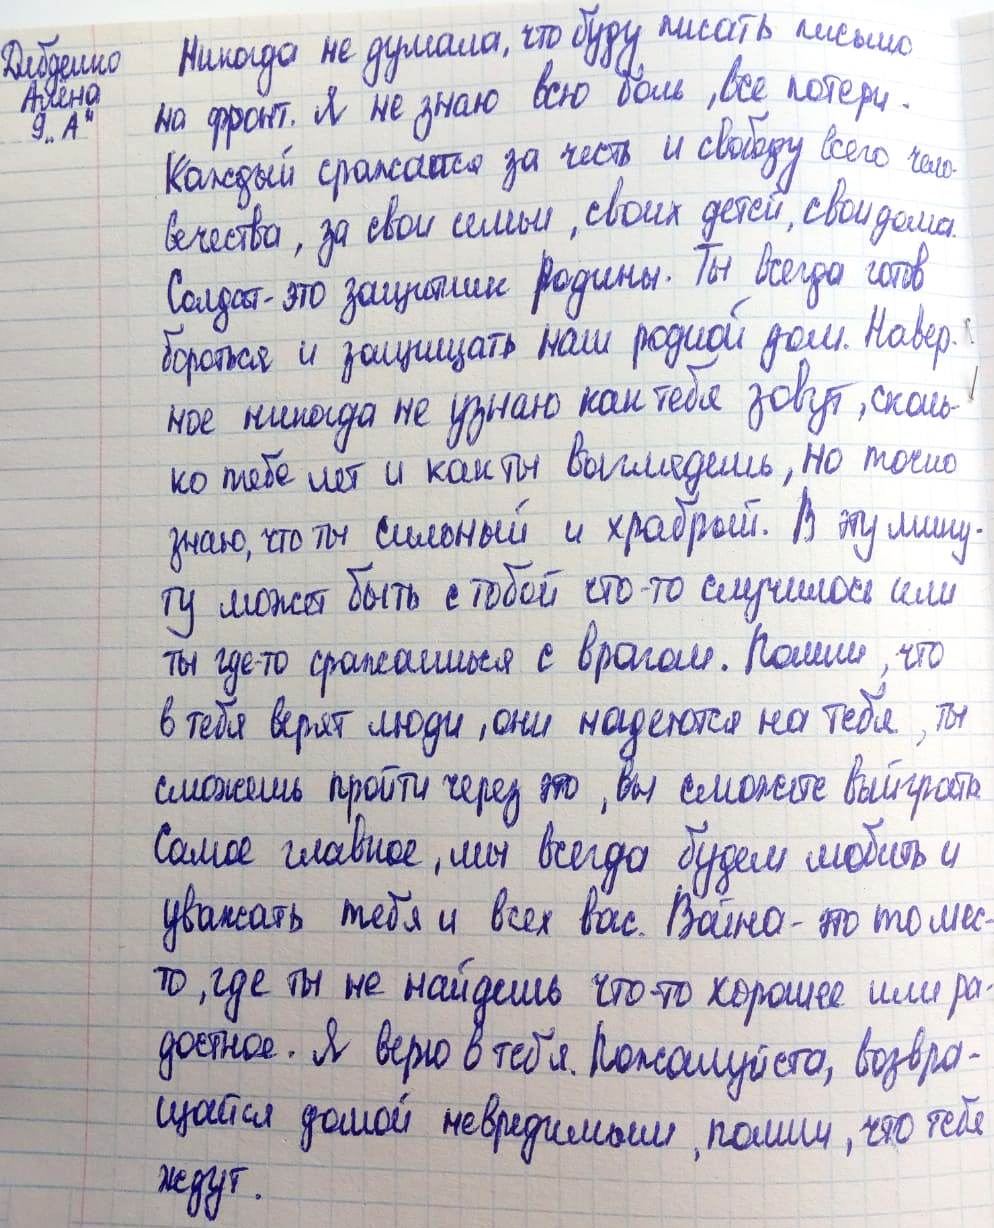 Дибденко
Алёна
9 „А"
Никогда не думала, что буду писать письмо
на фронт. Я не знаю всю боль, все потери.
Каждый сражается за честь и свободу всего чело-
вечества, за свои семьи, своих детей, свои дома.
Солдат - это защитник Родины. Ты всегда готов
бороться и защищать наш родной дом. Навер-
ное никогда не узнаю как тебя зовут, сколь-
ко тебе лет и как ты выглядешь, но точно
знаю, что ты сильный и храбрый. В эту мину-
ту может быть с тобой что-то случилось или
ты где-то сражаешься с врагом. Помни, что
в тебя верят люди, они надеются на тебя, ты
сможешь пройти через это, вы сможете выйграть
Самое главное, мы всегда будем любить и
уважать тебя и всех вас. Война - это то мес-
то, где ты не найдешь что-то хорошее или ра-
достное. Я верю в тебя. Пожалуйста, возвра-
щайся домой невредимым, помни, что тебя
ждут.